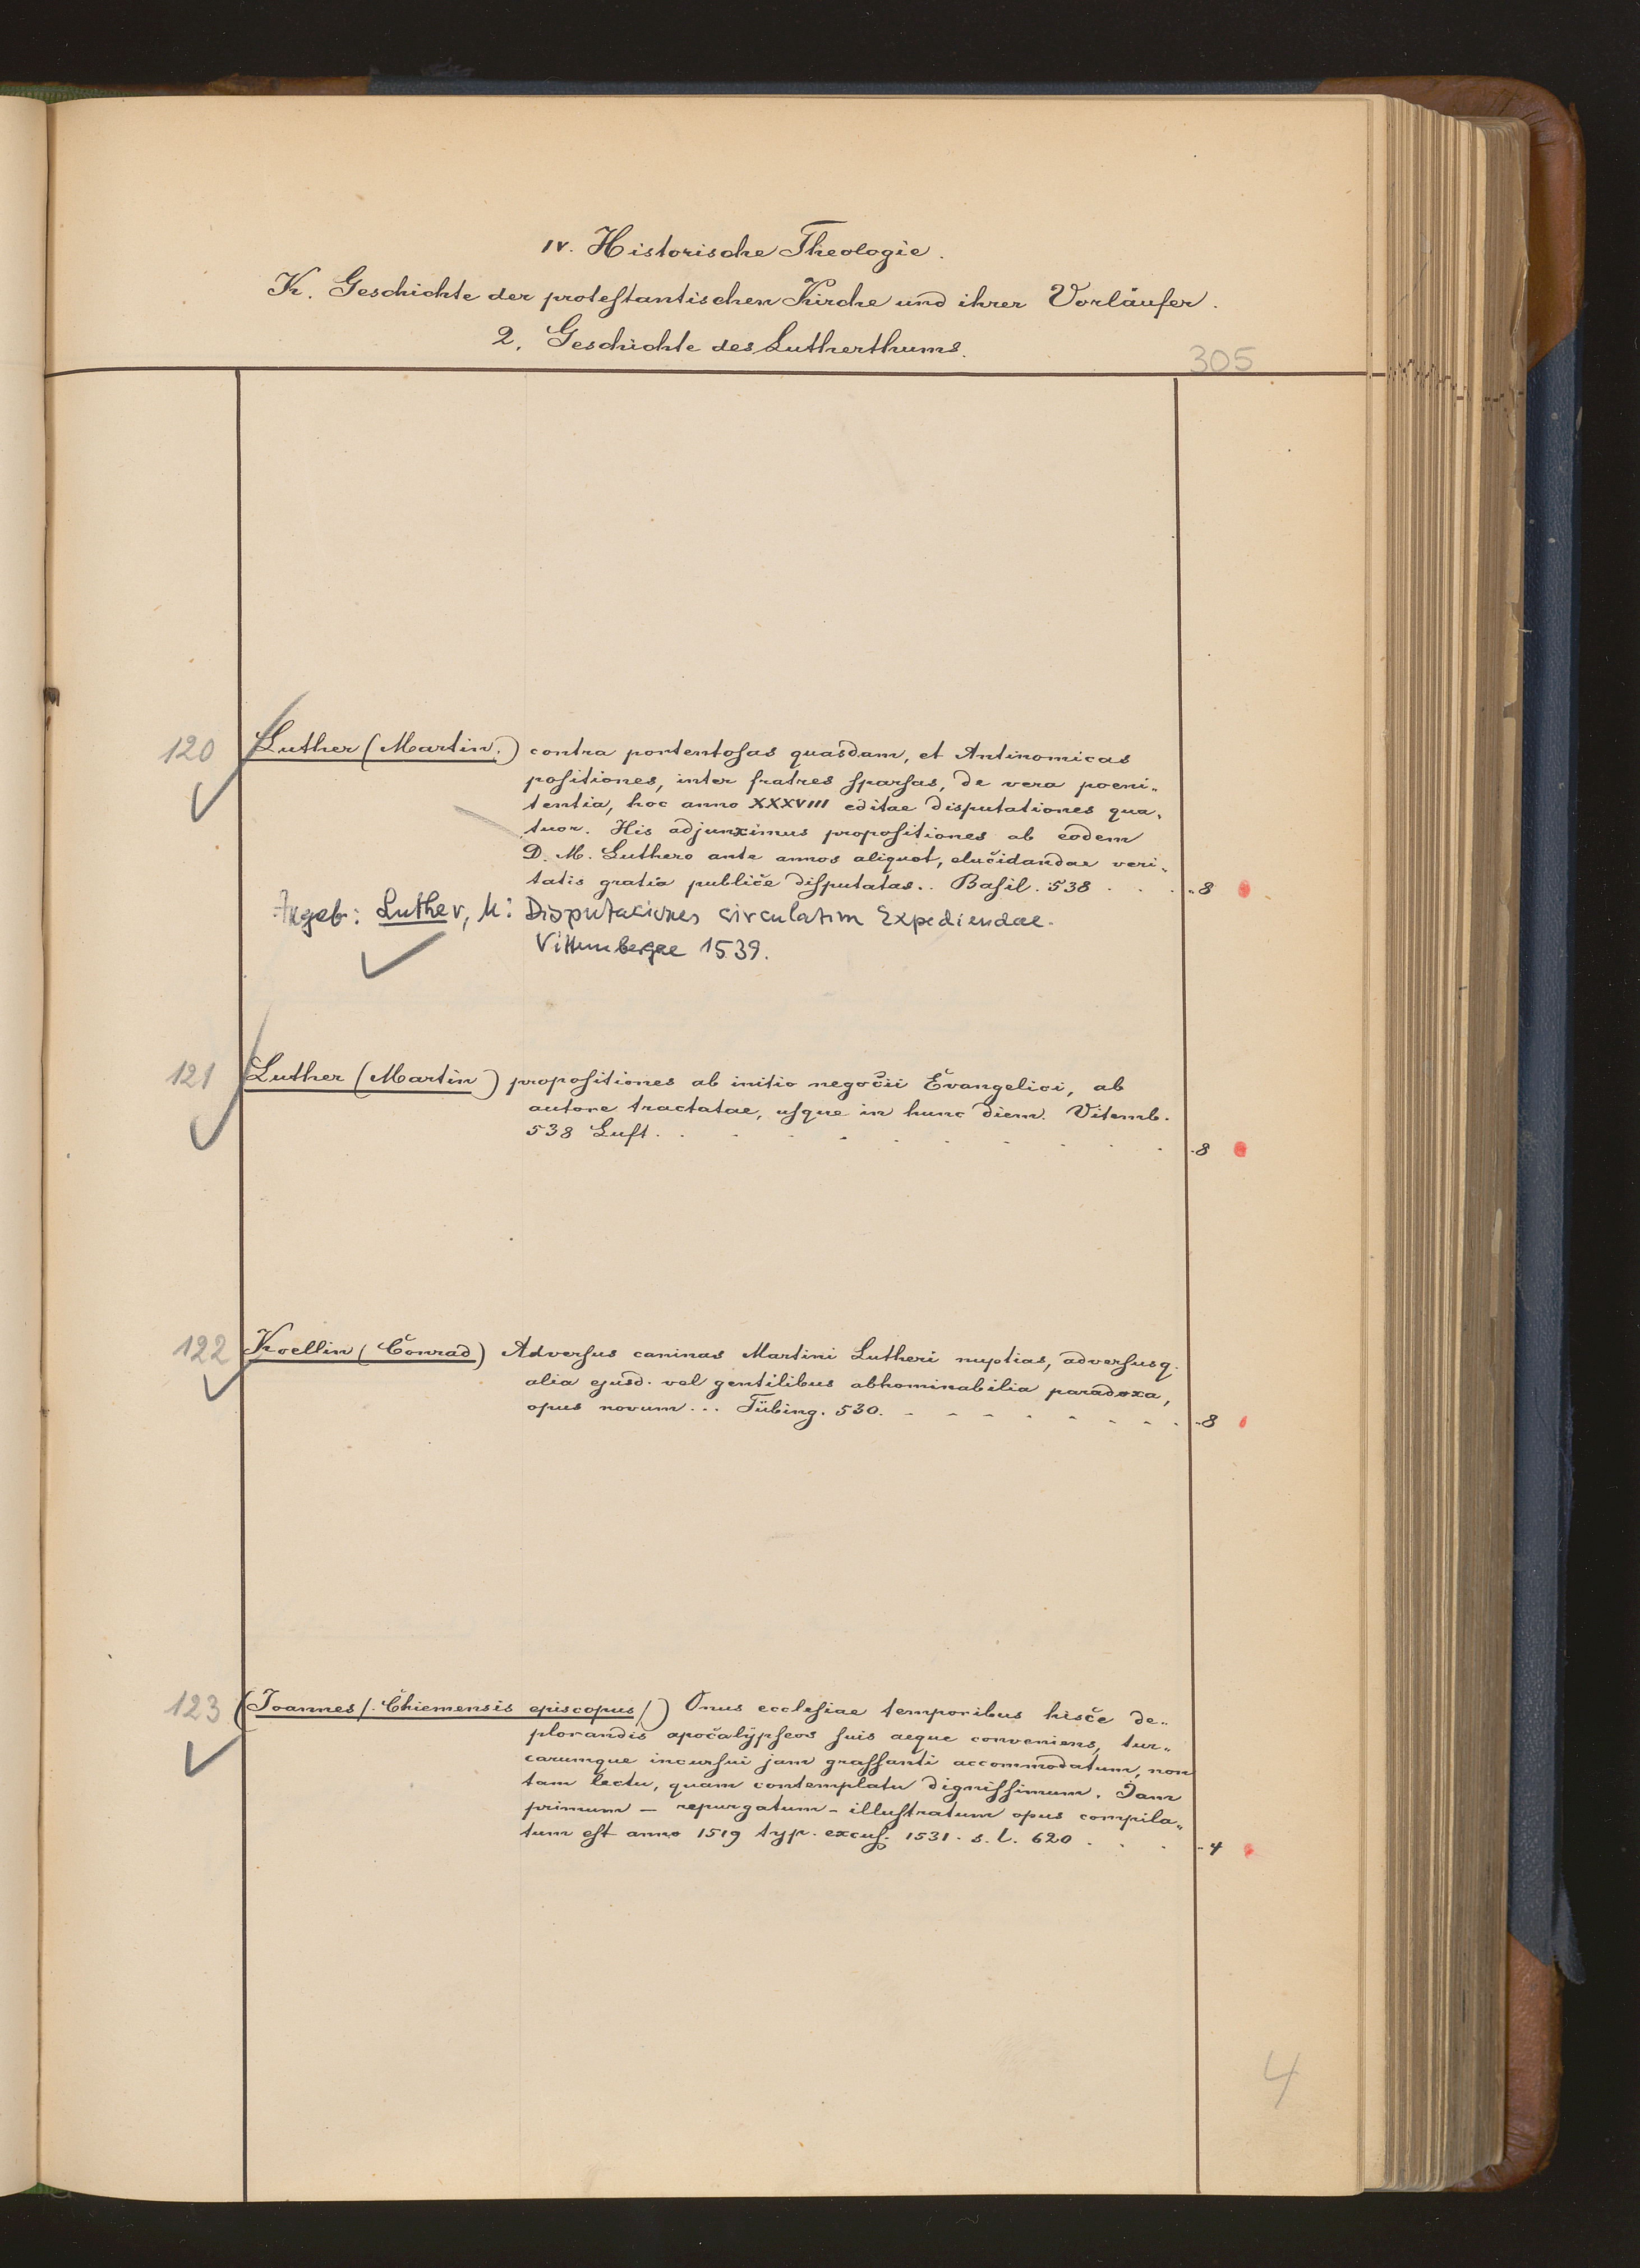 IV. Historische Theologie.
K. Geschichte der proteſtantischen Kirche und ihrer Vorläufer.
2. Geschichte des Lutherthums.
305
120 Luther (Martin.) contra portentoſas quasdam, et Antinomicas
poſitiones, inter fratres ſparſas, de vera poeni„
tentia, hoc anno XXXVIII editae disputationes qua„
tuor. His adjunximus propoſitiones ab eodem
D. M. Luthero ante annos aliquot, elucidandae veri„
tatis gratia publice diſputatas.. Baſil. 538 . . . „8
Angeb: Luther, M: Disputaciones circulatim Expediendae.
Vittembergae 1539.
121 Luther (Martin) propoſitiones ab initio negocii Evangelici, ab
autore tractatae, uſque in hunc diem. Vitemb.
538 Luft . . . . . . . . . . . „8
122 Koellin (Conrad) Adverſus caninas Martini Lutheri nuptias, adverſusq.
alia ejusd. vel gentilibus abhominabilia paradoxa,
opus novum... Tübing. 530. . . . . . . . „8
123 (Joannes /. Chiemensis episcopus/) Onus eccleſiae temporibus hisce de„
plorandis apocalypſeos ſuis aeque conveniens, tur„
carumque incurſui jam graſſanti accommodatum, non
tam lectu, quam contemplatu digniſſimum. Jam
primum – repurgatum – illuſtratum opus compila„
tum eſt anno 1519 typ. excuſ. 1531. s. l. 620 . . . „4
4